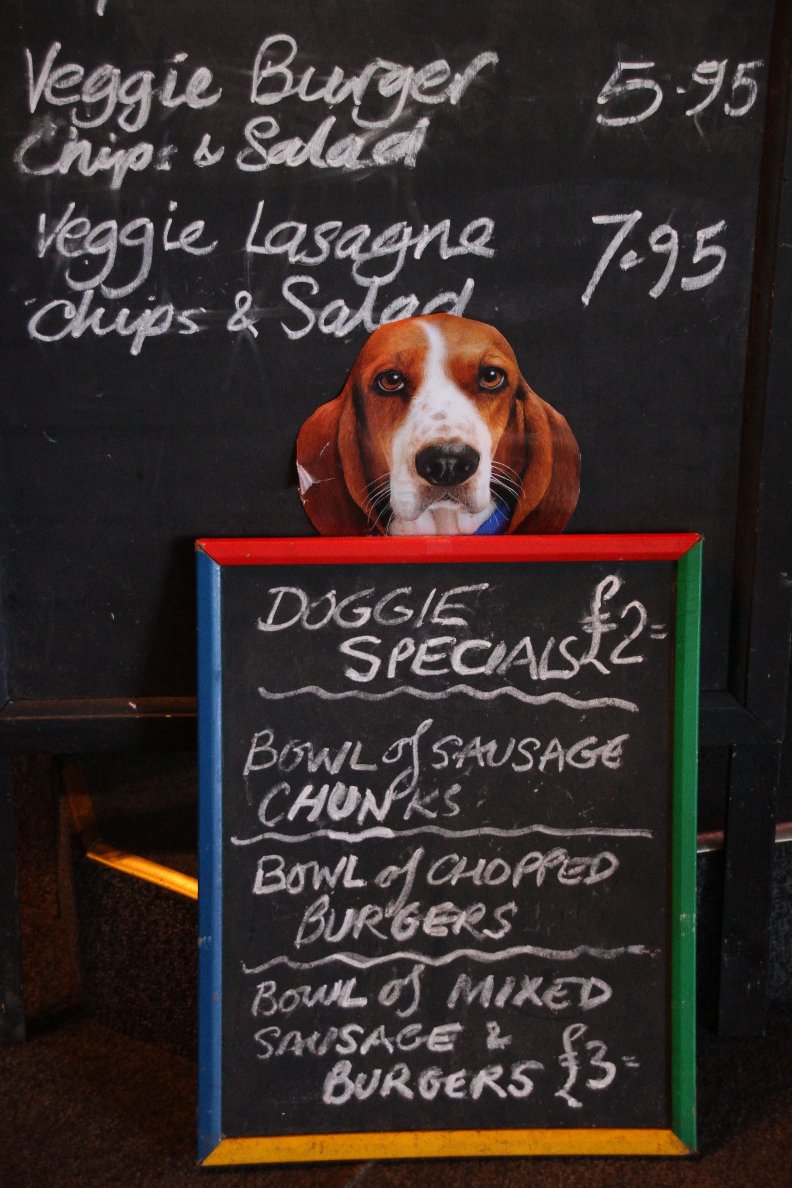 Veggie Burger 5.95
Chips & Salad
Veggie Lasagne 7.95
Chips & Salad
DOGGIE £2=
SPECIALS
BOWL of SAUSAGE
CHUNKS
BOWL of CHOPPED
BURGERS
BOWL of MIXED
SAUSAGE &
BURGERS £3=